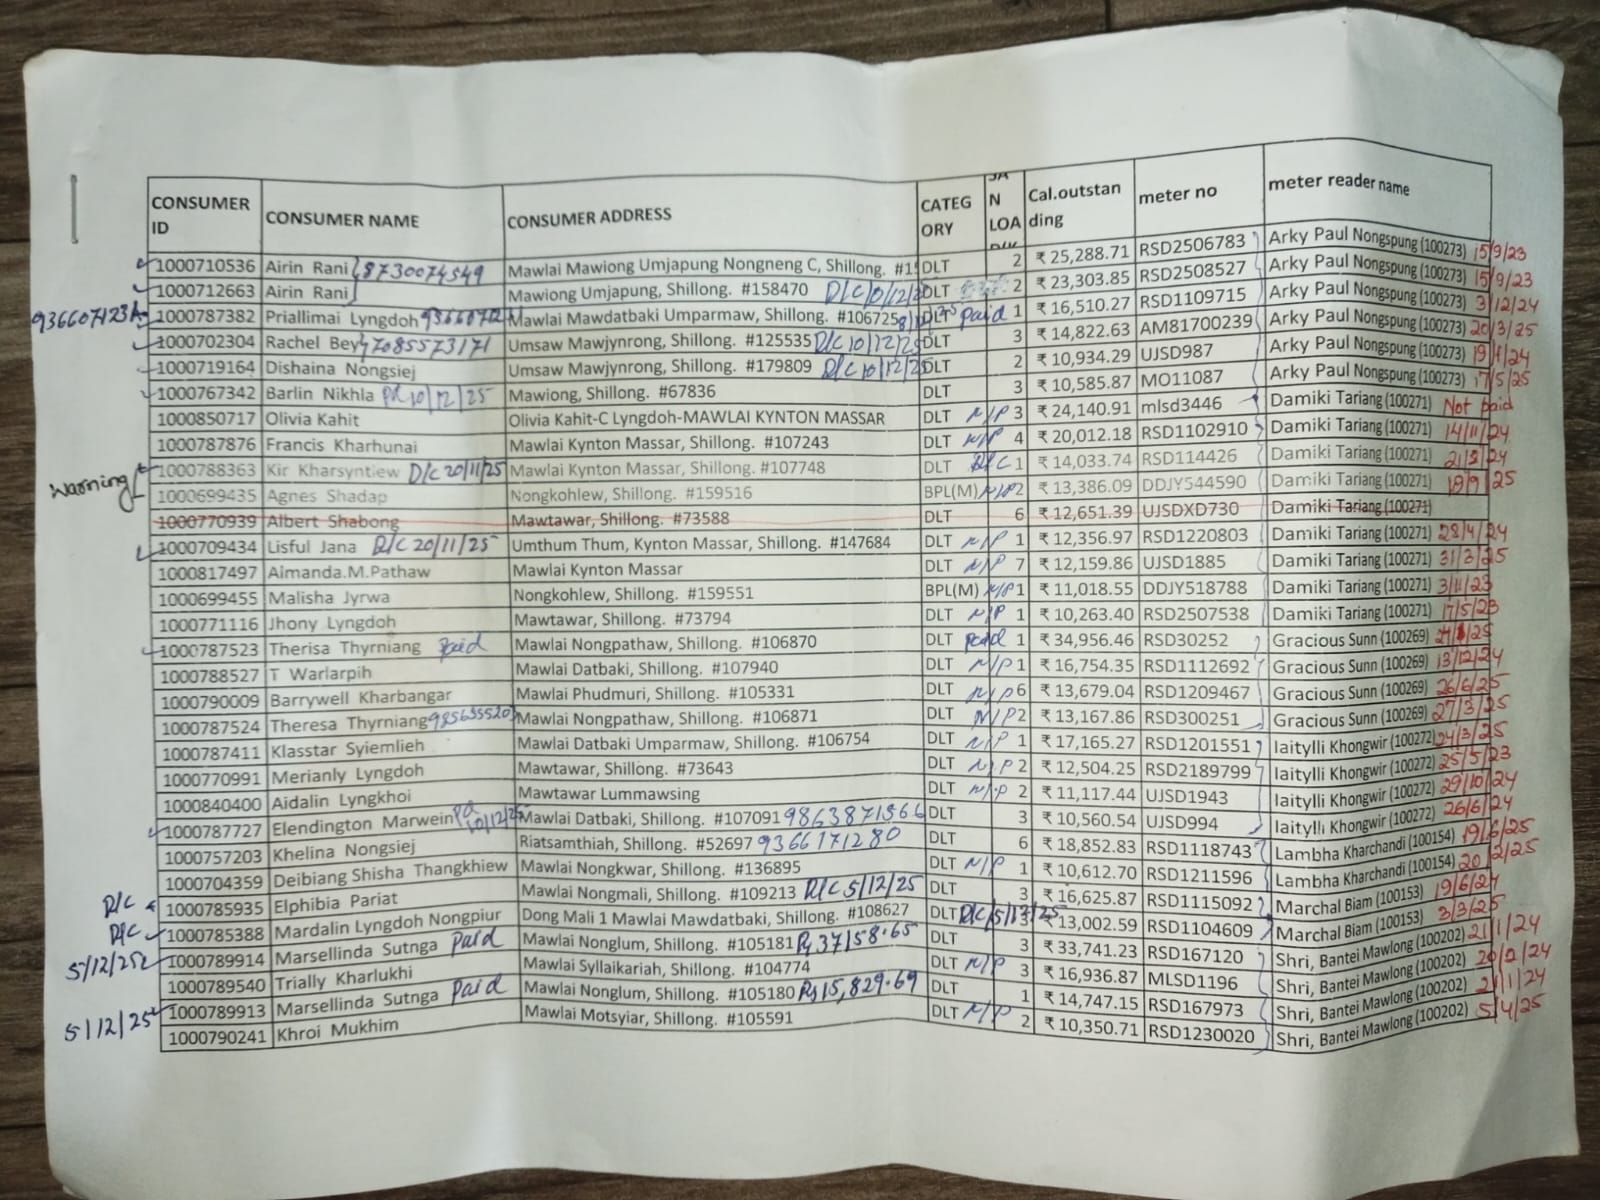 CONSUMER ID CONSUMER NAME CONSUMER ADDRESS CATEG ORY JA N LOA Cal.outstan ding meter no meter reader name
1000710536 Airin Rani 8730074549 Mawlai Mawiong Umjapung Nongneng C, Shillong. #1 DLT 2 ₹ 25,288.71 RSD2506783 Arky Paul Nongspung (100273) 15/9/23
1000712663 Airin Rani Mawiong Umjapung, Shillong. #158470 D/C DLT 2 ₹ 23,303.85 RSD2508527 Arky Paul Nongspung (100273) 15/9/23
1000787382 Priallimai Lyngdoh Mawlai Mawdatbaki Umparmaw, Shillong. #106725 DLT paid 1 ₹ 16,510.27 RSD1109715 Arky Paul Nongspung (100273) 3/12/24
1000702304 Rachel Bey 7085573171 Umsaw Mawjynrong, Shillong. #125535 D/C 10/12/25 DLT 3 ₹ 14,822.63 AM81700239 Arky Paul Nongspung (100273) 20/3/25
1000719164 Dishaina Nongsiej Umsaw Mawjynrong, Shillong. #179809 D/C 10/12/25 DLT 2 ₹ 10,934.29 UJSD987 Arky Paul Nongspung (100273)
1000767342 Barlin Nikhla Pd 10/12/25 Mawiong, Shillong. #67836 DLT 3 ₹ 10,585.87 MO11087 Arky Paul Nongspung (100273) 17/5/25
1000850717 Olivia Kahit Olivia Kahit-C Lyngdoh-MAWLAI KYNTON MASSAR DLT N/P 3 ₹ 24,140.91 mlsd3446 Damiki Tariang (100271) Not paid
1000787876 Francis Kharhunai Mawlai Kynton Massar, Shillong. #107243 DLT N/P 4 ₹ 20,012.18 RSD1102910 Damiki Tariang (100271) 14/11/24
Warning 1000788363 Kir Kharsyntiew D/C 20/11/25 Mawlai Kynton Massar, Shillong. #107748 DLT D/C 1 ₹ 14,033.74 RSD114426 Damiki Tariang (100271)
1000699435 Agnes Shadap Nongkohlew, Shillong. #159516 BPL(M) N/P 2 ₹ 13,386.09 DDJY544590 Damiki Tariang (100271)
1000770939 Albert Shabong Mawtawar, Shillong. #73588 DLT 6 ₹ 12,651.39 UJSDXD730 Damiki Tariang (100271)
1000709434 Lisful Jana D/C 20/11/25 Umthum Thum, Kynton Massar, Shillong. #147684 DLT N/P 1 ₹ 12,356.97 RSD1220803 Damiki Tariang (100271) 28/4/24
1000817497 Aimanda.M.Pathaw Mawlai Kynton Massar DLT N/P 7 ₹ 12,159.86 UJSD1885 Damiki Tariang (100271) 31/3/25
1000699455 Malisha Jyrwa Nongkohlew, Shillong. #159551 BPL(M) N/P 1 ₹ 11,018.55 DDJY518788 Damiki Tariang (100271) 3/11/23
1000771116 Jhony Lyngdoh Mawtawar, Shillong. #73794 DLT N/P 1 ₹ 10,263.40 RSD2507538 Damiki Tariang (100271) 17/5/23
1000787523 Therisa Thyrniang Paid Mawlai Nongpathaw, Shillong. #106870 DLT Paid 1 ₹ 34,956.46 RSD30252 Gracious Sunn (100269)
1000788527 T Warlarpih Mawlai Datbaki, Shillong. #107940 DLT N/P 1 ₹ 16,754.35 RSD1112692 Gracious Sunn (100269) 13/12/24
1000790009 Barrywell Kharbangar Mawlai Phudmuri, Shillong. #105331 DLT N/P 6 ₹ 13,679.04 RSD1209467 Gracious Sunn (100269) 26/6/25
1000787524 Theresa Thyrniang Mawlai Nongpathaw, Shillong. #106871 DLT N/P 2 ₹ 13,167.86 RSD300251 Gracious Sunn (100269) 27/3/25
1000787411 Klasstar Syiemlieh Mawlai Datbaki Umparmaw, Shillong. #106754 DLT N/P 1 ₹ 17,165.27 RSD1201551 Iaitylli Khongwir (100272) 24/3/25
1000770991 Merianly Lyngdoh Mawtawar, Shillong. #73643 DLT N/P 2 ₹ 12,504.25 RSD2189799 Iaitylli Khongwir (100272) 25/5/23
1000840400 Aidalin Lyngkhoi Mawtawar Lummawsing DLT N/P 2 ₹ 11,117.44 UJSD1943 Iaitylli Khongwir (100272) 29/10/24
1000787727 Elendington Marwein Pd 10/12/25 Mawlai Datbaki, Shillong. #107091 9863871566 DLT 3 ₹ 10,560.54 UJSD994 Iaitylli Khongwir (100272) 26/6/24
1000757203 Khelina Nongsiej Riatsamthiah, Shillong. #52697 9366171280 DLT 6 ₹ 18,852.83 RSD1118743 Lambha Kharchandi (100154) 19/6/25
1000704359 Deibiang Shisha Thangkhiew Mawlai Nongkwar, Shillong. #136895 DLT N/P 1 ₹ 10,612.70 RSD1211596 Lambha Kharchandi (100154) 20/2/25
D/C 1000785935 Elphibia Pariat Mawlai Nongmali, Shillong. #109213 D/C 5/12/25 DLT 3 ₹ 16,625.87 RSD1115092 Marchal Biam (100153) 19/6/24
D/C 1000785388 Mardalin Lyngdoh Nongpiur Dong Mali 1 Mawlai Mawdatbaki, Shillong. #108627 DLT D/C 5/12/25 ₹ 13,002.59 RSD1104609 Marchal Biam (100153) 3/3/25
5/12/25 1000789914 Marsellinda Sutnga Paid Mawlai Nonglum, Shillong. #105181 Rs 37158.65 DLT 3 ₹ 33,741.23 RSD167120 Shri, Bantei Mawlong (100202) 21/1/24
1000789540 Trially Kharlukhi Mawlai Syllaikariah, Shillong. #104774 DLT N/P 3 ₹ 16,936.87 MLSD1196 Shri, Bantei Mawlong (100202) 20/2/24
5/12/25 1000789913 Marsellinda Sutnga Paid Mawlai Nonglum, Shillong. #105180 Rs 15,829.69 DLT 1 ₹ 14,747.15 RSD167973 Shri, Bantei Mawlong (100202) 21/1/24
1000790241 Khroi Mukhim Mawlai Motsyiar, Shillong. #105591 DLT N/P 2 ₹ 10,350.71 RSD1230020 Shri, Bantei Mawlong (100202) 5/4/25